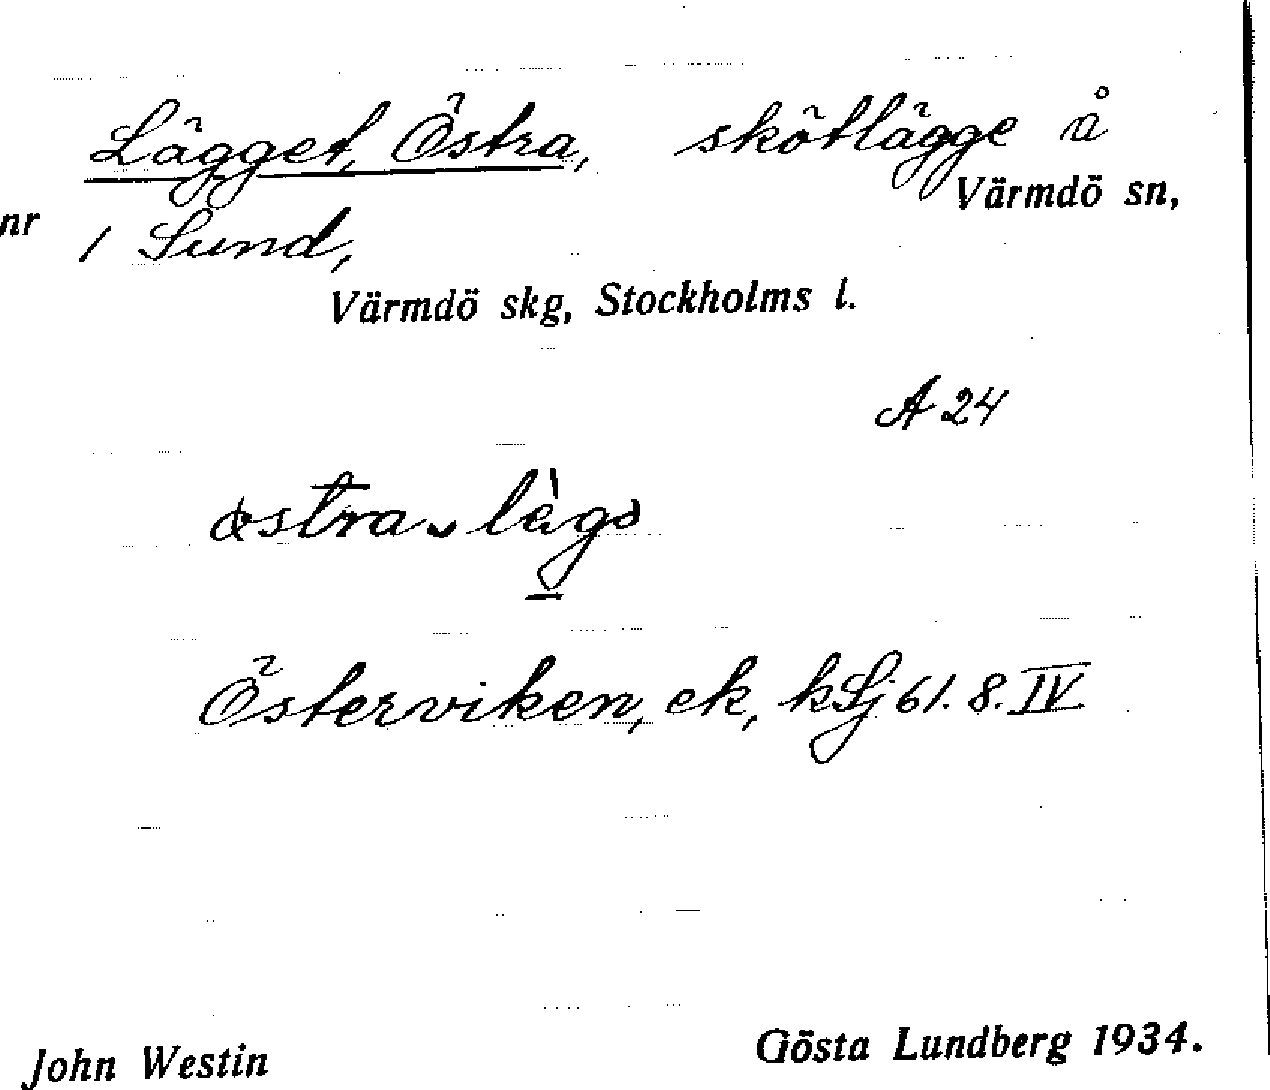 Lägget, Östra, skötlägge å
Värmdö sn,
nr 1 Sund,
Värmdö skg, Stockholms l.
A 24
Österviken, ek, kSj 61. 8. IV
John Westin
Gösta Lundberg 1934.